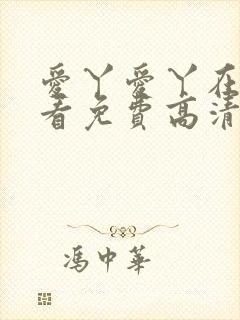 愛丫愛丫在
看免費高清
馮中華